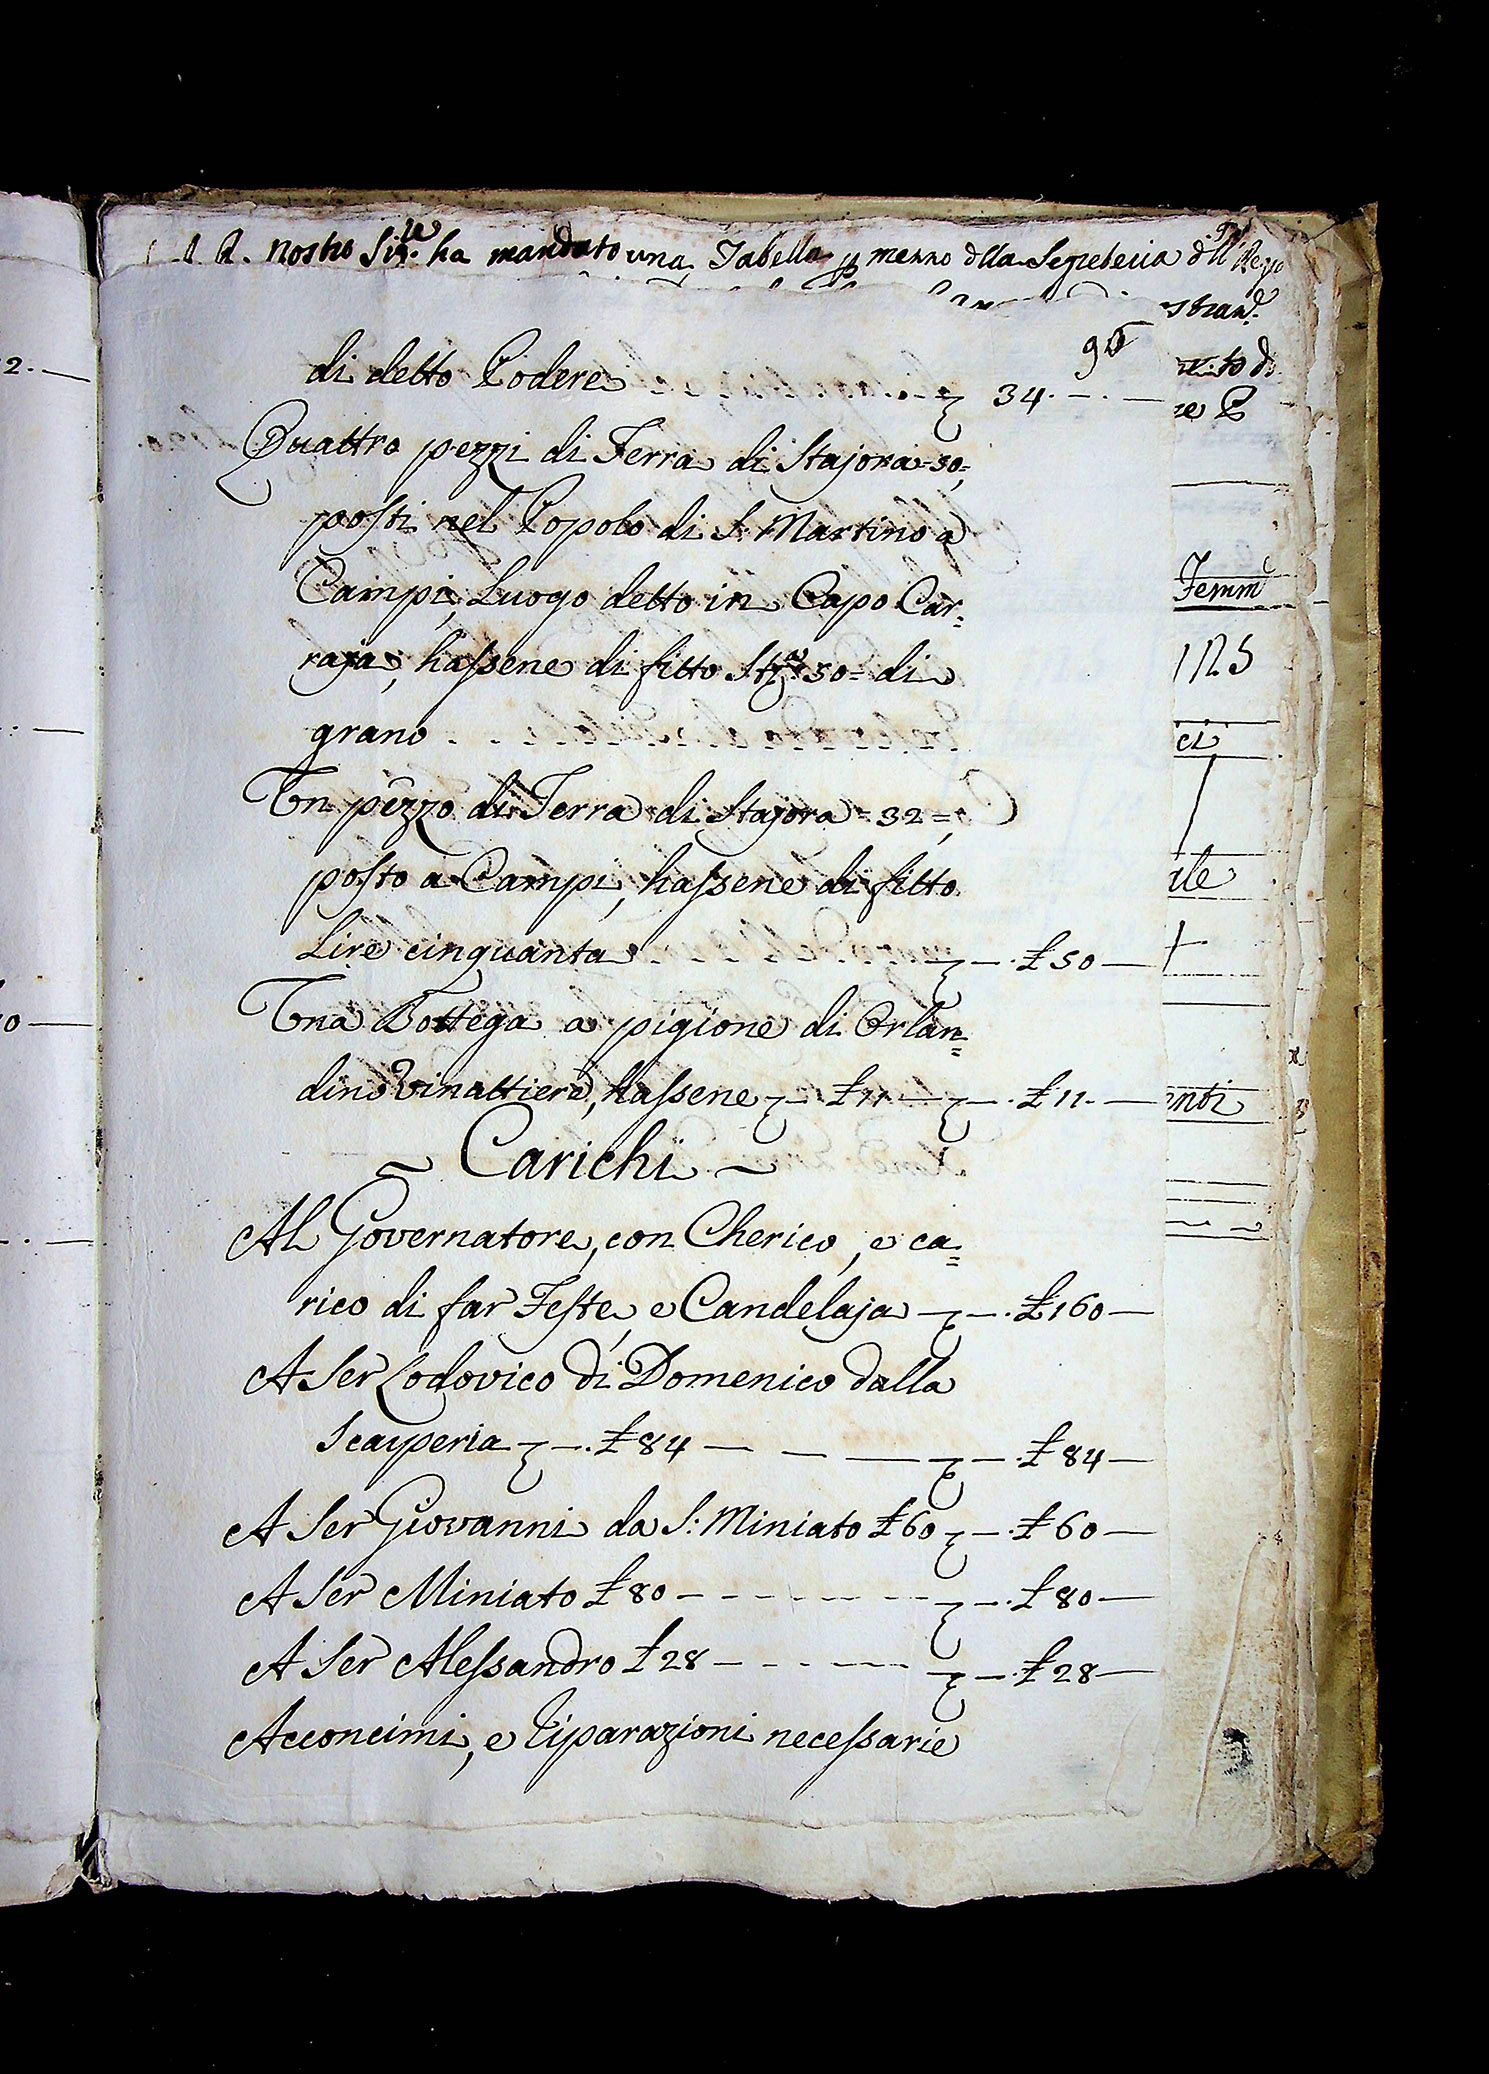 Nostro Sig.re ha mandato una Tabella p mezzo dlla Segreteria dll Regio
strani.
96
di detto Podere 34. — . —
Quattro pezzi di Terra di Stajora=50=,
posti nel Popolo di S: Martino a
Campi, Luogo detto in Capo Car=
raja, hassene di fitto St.a 50= di
grano . . .
Un pezzo di Terra di Stajora=32=,
posto a Campi, hassene di fitto
Lire cinquanta — . £ 50 —
Una Bottega a pigione di Orlan=
dino Vinattiere, hassene — £ 11 — — . £ 11. —
~ Carichi ~
Al Governatore, con Cherico, e ca=
rico di far Feste, e Candelaja — — . £ 160 —
A Ser Lodovico di Domenico dalla
Scarperia — . £ 84 — — — — . £ 84 —
A Ser Giovanni da S: Miniato £ 60 — . £ 60 —
A Ser Miniato £ 80 - - - - - - — . £ 80 —
A Ser Alessandro £ 28 - - - - — — . £ 28 —
Acconcimi, e Riparazioni necessarie
2. —
0 —
Femm
1125
ci
ile
enti